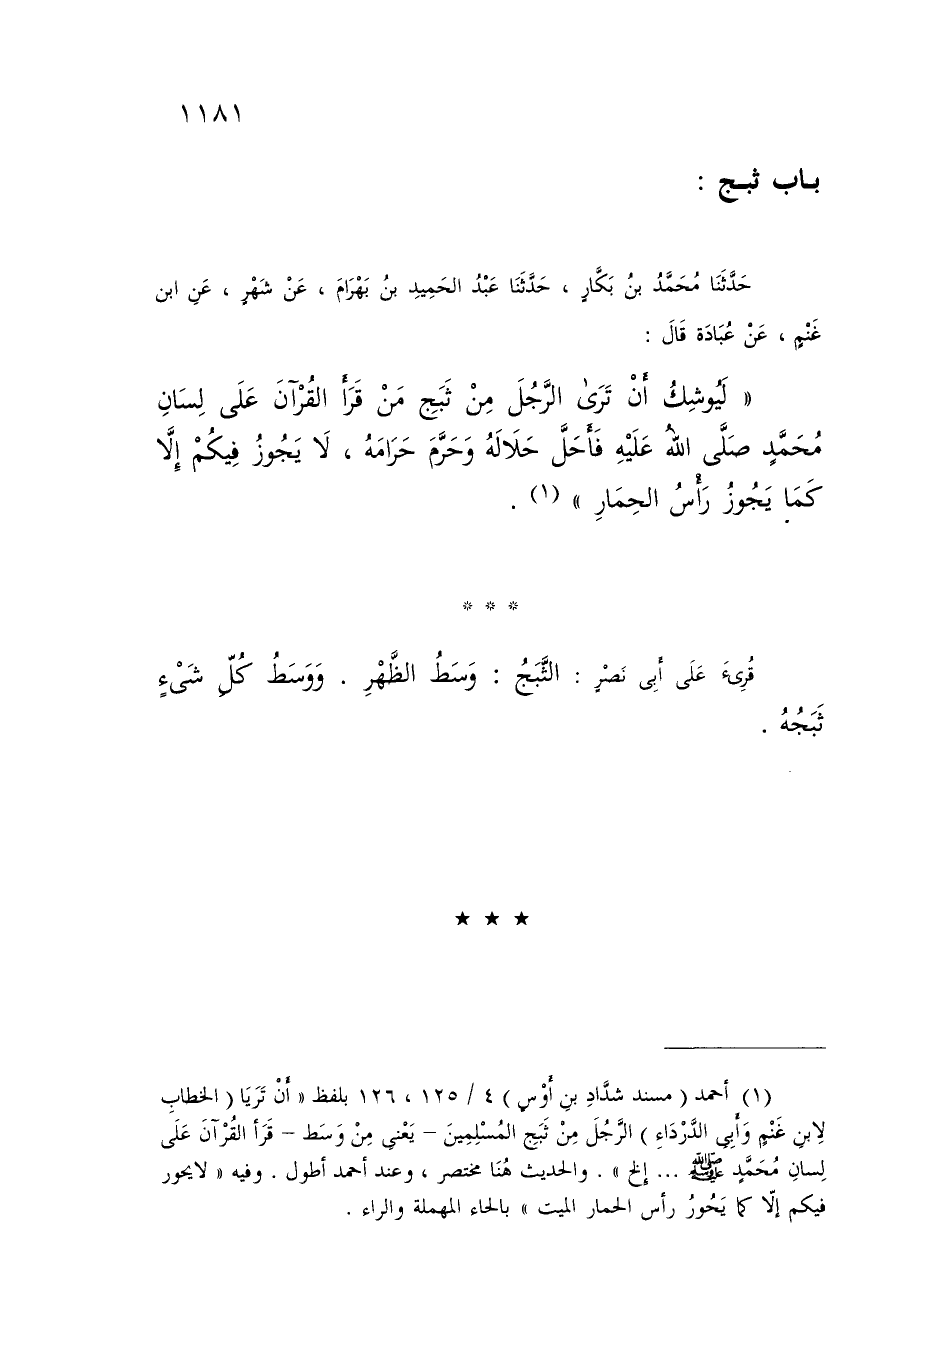 ١١٨١
بـاب ثبـج :
حَدَّثَنَا مُحَمَّدُ بنُ بَكَّارٍ ، حَدَّثَنَا عَبْدُ الحَمِيدِ بنُ بَهْرَامَ ، عَنْ شَهْرٍ ، عَنِ ابن
غَنْمٍ ، عَنْ عُبَادَة قَالَ :
« لَيُوشِكُ أَنْ تَرَىٰ الرَّجُلَ مِنْ ثَبَجِ مَنْ قَرَأَ القُرْآنَ عَلَى لِسَانِ
مُحَمَّدٍ صَلَّى اللهُ عَلَيْهِ فَأَحَلَّ حَلَالَهُ وَحَرَّمَ حَرَامَهُ ، لَا يَجُوزُ فِيكُمْ إِلَّا
كَمَا يَجُوزُ رَأْسُ الحِمَارِ » (١) .
* * *
قُرِىءَ عَلَى أَبِى نَصْرٍ : الثَّبَجُ : وَسَطُ الظَّهْرِ . وَوَسَطُ كُلِّ شَىْءٍ
ثَبَجُهُ .
★ ★ ★
(١) أحمد ( مسند شدَّادِ بنِ أَوْسٍ ) ٤ / ١٢٥ ، ١٢٦ بلفظ « أَنْ تَرَيَا ( الخطابِ
لِابنِ غَنْمٍ وَأَبِي الدَّرْدَاءِ ) الرَّجُلَ مِنْ ثَبَجِ المُسْلِمِينَ – يَعْنِى مِنْ وَسَط – قَرَأَ القُرْآنَ عَلَى
لِسانِ مُحَمَّدٍ ﷺ ... إلخ » . والحديث هُنَا مختصر ، وعند أحمد أطول . وفيه « لايحور
فيكم إلَّا كما يَحُورُ رأس الحمار الميت » بالحاء المهملة والراء .